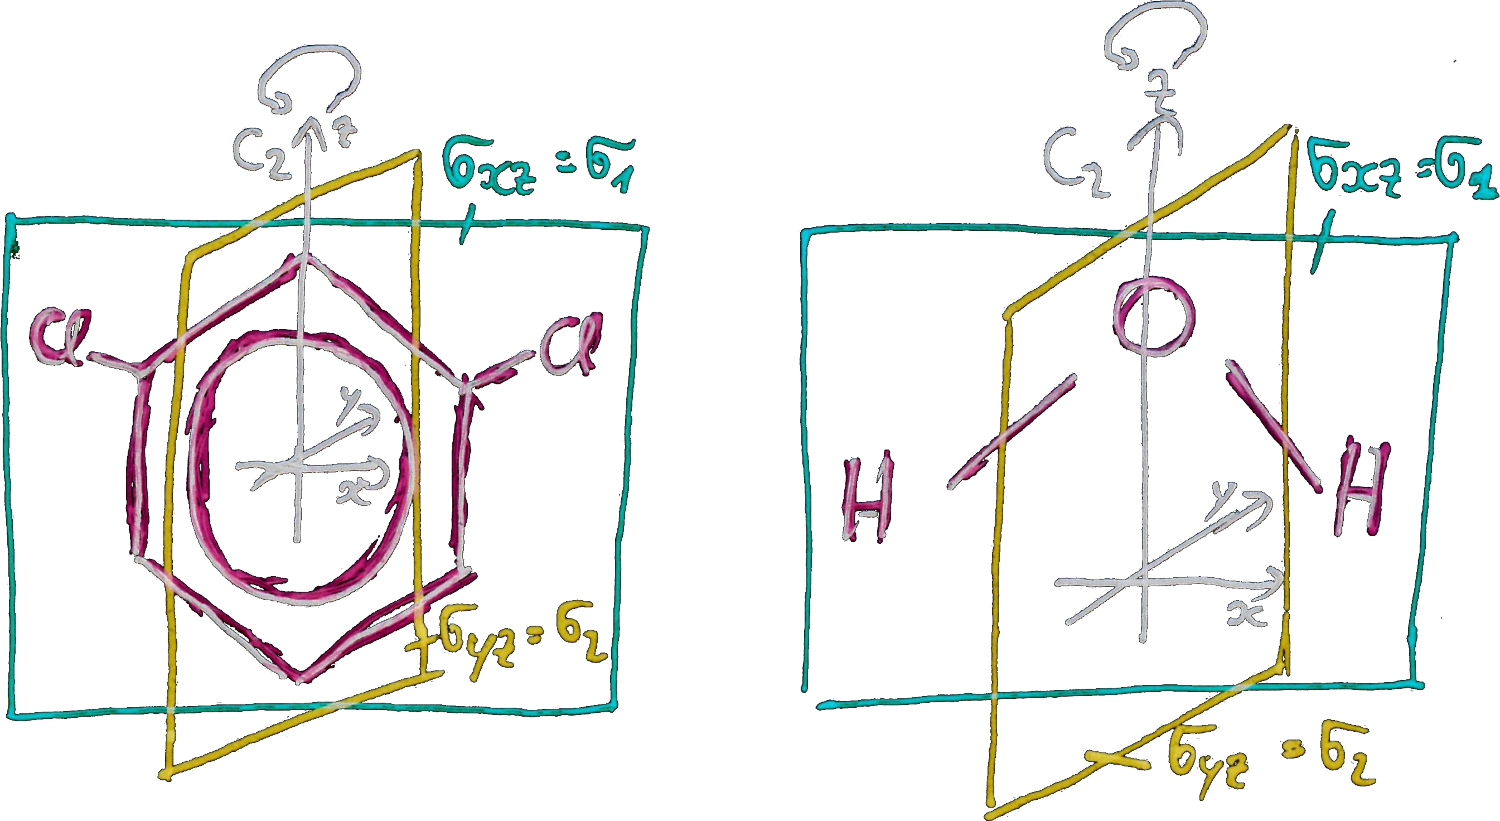 C₂ z
σxz = σ1
Cl
Cl
y
x
σyz = σ2
z
C₂
σxz = σ1
O
H
H
y
x
σyz = σ2